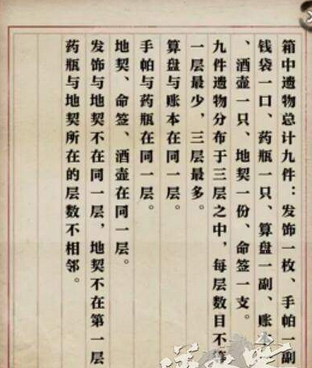 箱中遗物总计九件：发饰一枚、手帕一副
钱袋一口、药瓶一只、算盘一副、账本
、酒壶一只、地契一份、命签一支。
九件遗物分布于三层之中，每层数目不等
一层最少，三层最多。
算盘与账本在同一层。
手帕与药瓶在同一层。
地契、命签、酒壶在同一层。
发饰与地契不在同一层，地契不在第一层
药瓶与地契所在的层数不相邻。